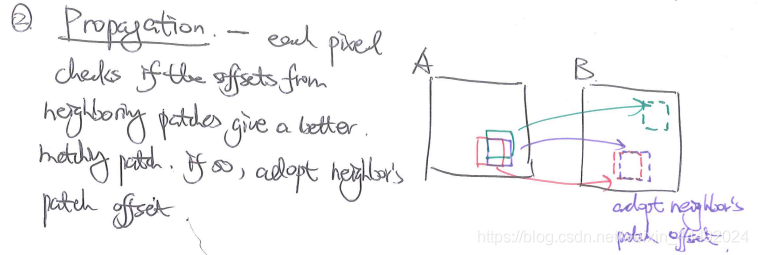 ② Propagation. — each pixel
checks if the offsets from
neighboring patches give a better.
matching patch. if so, adopt neighbor's
patch offset.
A
B
adopt neighbor's
patch offset